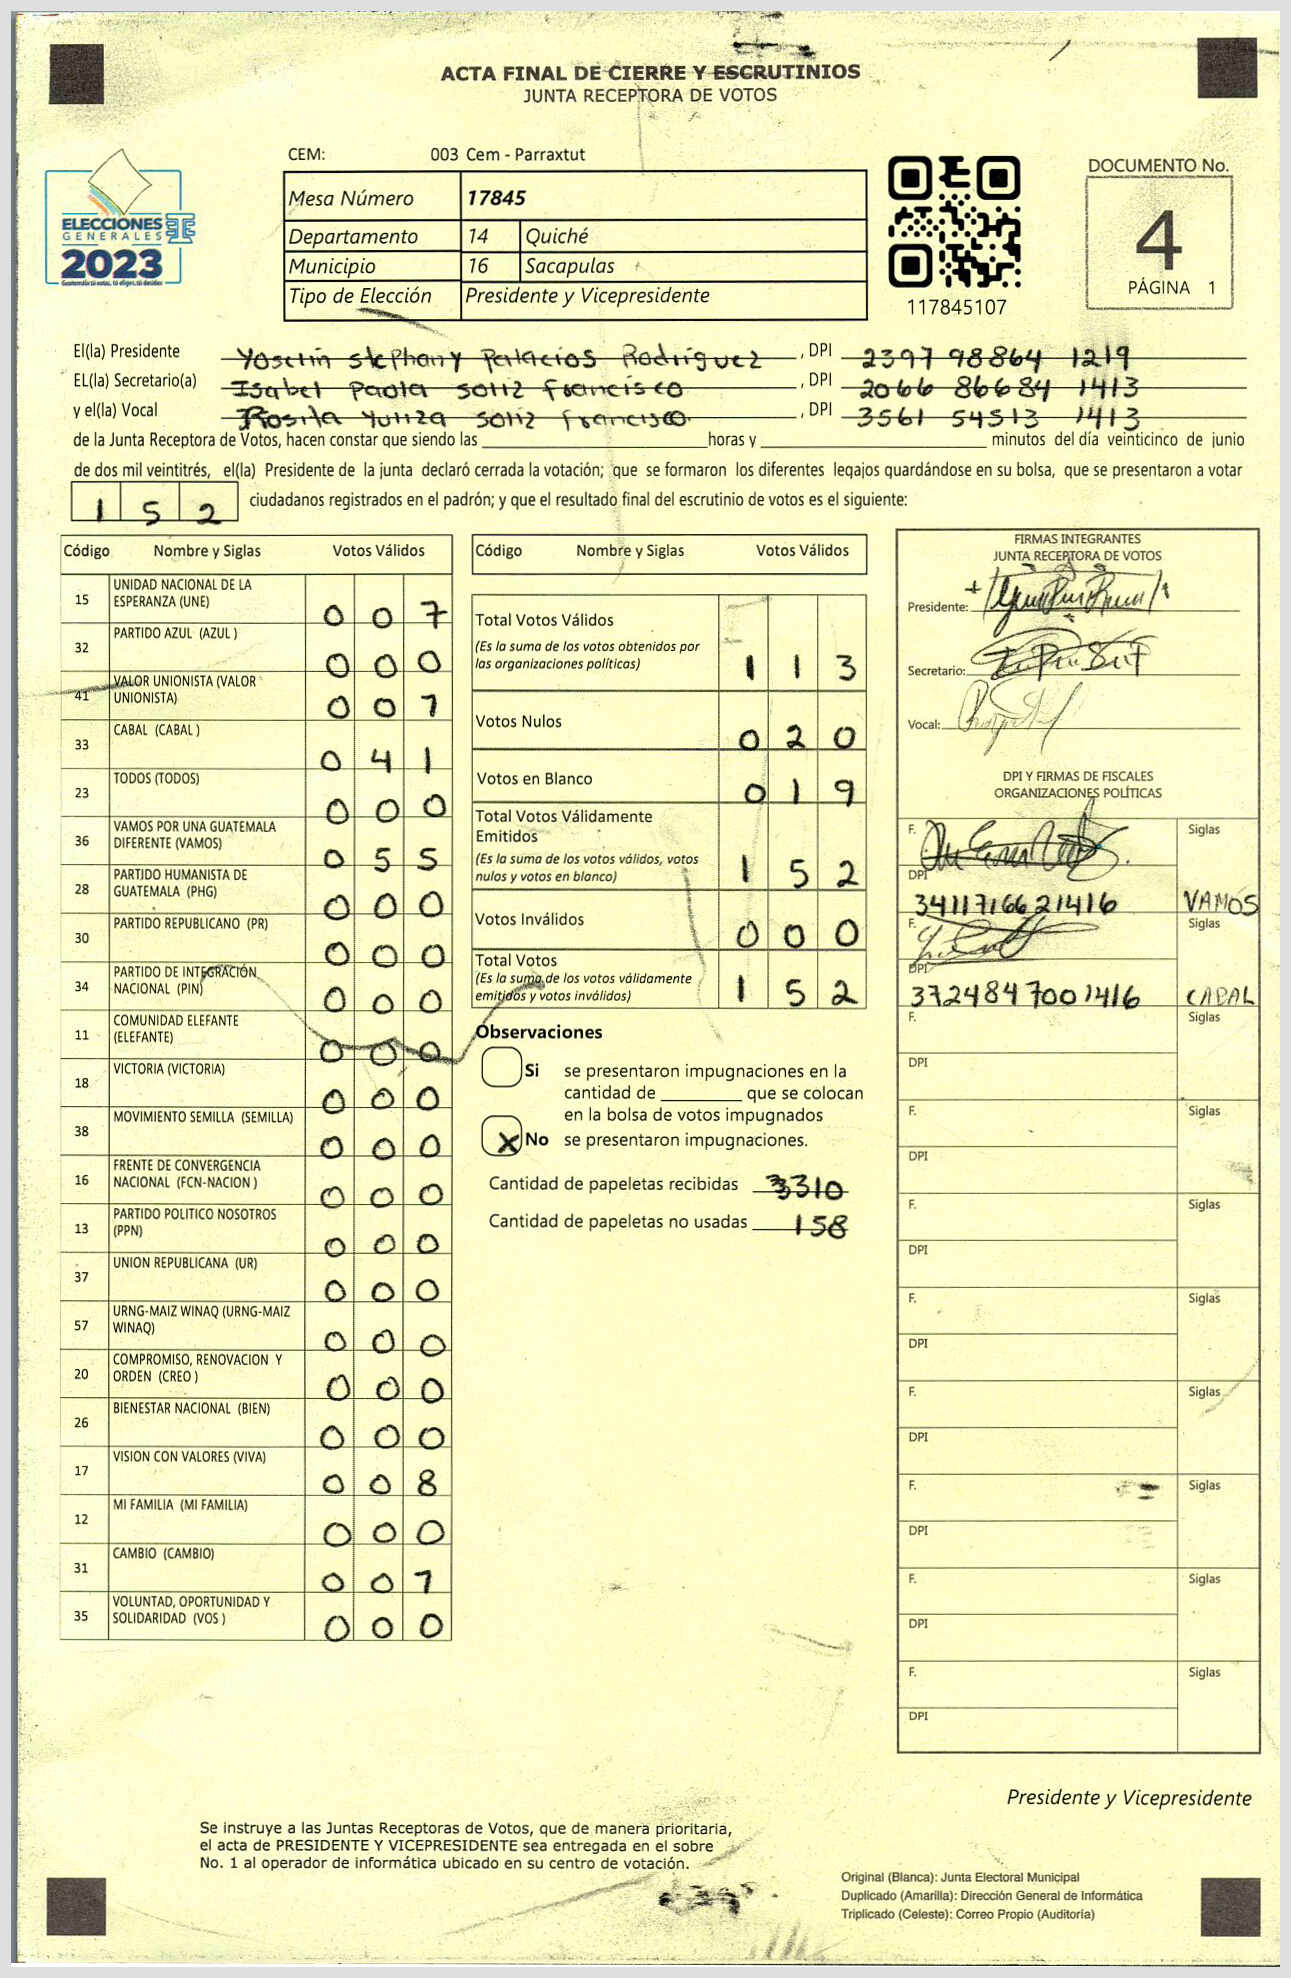 ACTA FINAL DE CIERRE Y ESCRUTINIOS
JUNTA RECEPTORA DE VOTOS
CEM: 003 Cem - Parraxtut
ELECCIONES
GENERALES
2023
Mesa Número 17845
Departamento 14 Quiché
Municipio 16 Sacapulas
Tipo de Elección Presidente y Vicepresidente
117845107
DOCUMENTO No.
4
PÁGINA 1
El(la) Presidente Yoselin Stephany Palacios Rodriguez , DPI 2397 98864 1219
EL(la) Secretario(a) Isabel Paola Soliz Francisco , DPI 2066 86684 1413
y el(la) Vocal Rosila Yuliza Soliz Francisco. , DPI 3561 54513 1413
de la Junta Receptora de Votos, hacen constar que siendo las horas y minutos del día veinticinco de junio
de dos mil veintitrés, el(la) Presidente de la junta declaró cerrada la votación; que se formaron los diferentes legajos guardándose en su bolsa, que se presentaron a votar
152 ciudadanos registrados en el padrón; y que el resultado final del escrutinio de votos es el siguiente:
Código Nombre y Siglas Votos Válidos
15 UNIDAD NACIONAL DE LA
ESPERANZA (UNE) 007
32 PARTIDO AZUL (AZUL ) 000
41 VALOR UNIONISTA (VALOR
UNIONISTA) 007
33 CABAL (CABAL ) 041
23 TODOS (TODOS) 000
36 VAMOS POR UNA GUATEMALA
DIFERENTE (VAMOS) 055
28 PARTIDO HUMANISTA DE
GUATEMALA (PHG) 000
30 PARTIDO REPUBLICANO (PR) 000
34 PARTIDO DE INTEGRACIÓN
NACIONAL (PIN) 000
11 COMUNIDAD ELEFANTE
(ELEFANTE) 000
18 VICTORIA (VICTORIA) 000
38 MOVIMIENTO SEMILLA (SEMILLA) 000
16 FRENTE DE CONVERGENCIA
NACIONAL (FCN-NACION ) 000
13 PARTIDO POLITICO NOSOTROS
(PPN) 000
37 UNION REPUBLICANA (UR) 000
57 URNG-MAIZ WINAQ (URNG-MAIZ
WINAQ) 000
20 COMPROMISO, RENOVACION Y
ORDEN (CREO ) 000
26 BIENESTAR NACIONAL (BIEN) 000
17 VISION CON VALORES (VIVA) 008
12 MI FAMILIA (MI FAMILIA) 000
31 CAMBIO (CAMBIO) 007
35 VOLUNTAD, OPORTUNIDAD Y
SOLIDARIDAD (VOS ) 000
Código Nombre y Siglas Votos Válidos
Total Votos Válidos
(Es la suma de los votos obtenidos por
las organizaciones políticas) 113
Votos Nulos 020
Votos en Blanco 019
Total Votos Válidamente
Emitidos
(Es la suma de los votos válidos, votos
nulos y votos en blanco) 152
Votos Inválidos 000
Total Votos
(Es la suma de los votos válidamente
emitidos y votos inválidos) 152
Observaciones
Si se presentaron impugnaciones en la
cantidad de que se colocan
en la bolsa de votos impugnados
X No se presentaron impugnaciones.
Cantidad de papeletas recibidas 3310
Cantidad de papeletas no usadas 158
FIRMAS INTEGRANTES
JUNTA RECEPTORA DE VOTOS
Presidente:
Secretario:
Vocal:
DPI Y FIRMAS DE FISCALES
ORGANIZACIONES POLÍTICAS
F. Siglas
DPI 3411716621416 VAMOS
F. Siglas
DPI 3724847001416 CABAL
F. Siglas
DPI
F. Siglas
DPI
F. Siglas
DPI
F. Siglas
DPI
F. Siglas
DPI
F. Siglas
DPI
F. Siglas
DPI
F. Siglas
DPI
Presidente y Vicepresidente
Se instruye a las Juntas Receptoras de Votos, que de manera prioritaria,
el acta de PRESIDENTE Y VICEPRESIDENTE sea entregada en el sobre
No. 1 al operador de informática ubicado en su centro de votación.
Original (Blanca): Junta Electoral Municipal
Duplicado (Amarilla): Dirección General de Informática
Triplicado (Celeste): Correo Propio (Auditoría)